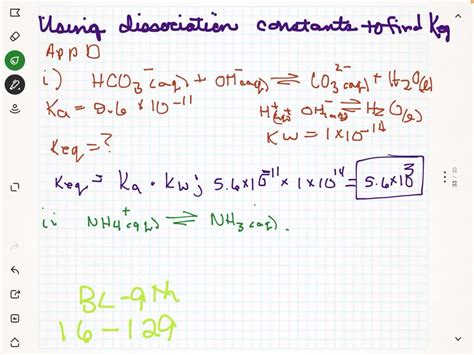 Using dissociation constants to find Keq
App D
i) HCO₃⁻(aq) + OH⁻(aq) ⇌ CO₃²⁻(aq) + H₂O(l)
Ka = 5.6 * 10⁻¹¹
H⁺(aq) OH⁻(aq) ⇌ H₂O(l)
Kw = 1x10⁻¹⁴
Keq = ?
Keq = Ka · Kw; 5.6*10⁻¹¹ * 1x10¹⁴ = 5.6x10³
ii NH4⁺(aq) ⇌ NH₃(aq).
BL-9th
16-129